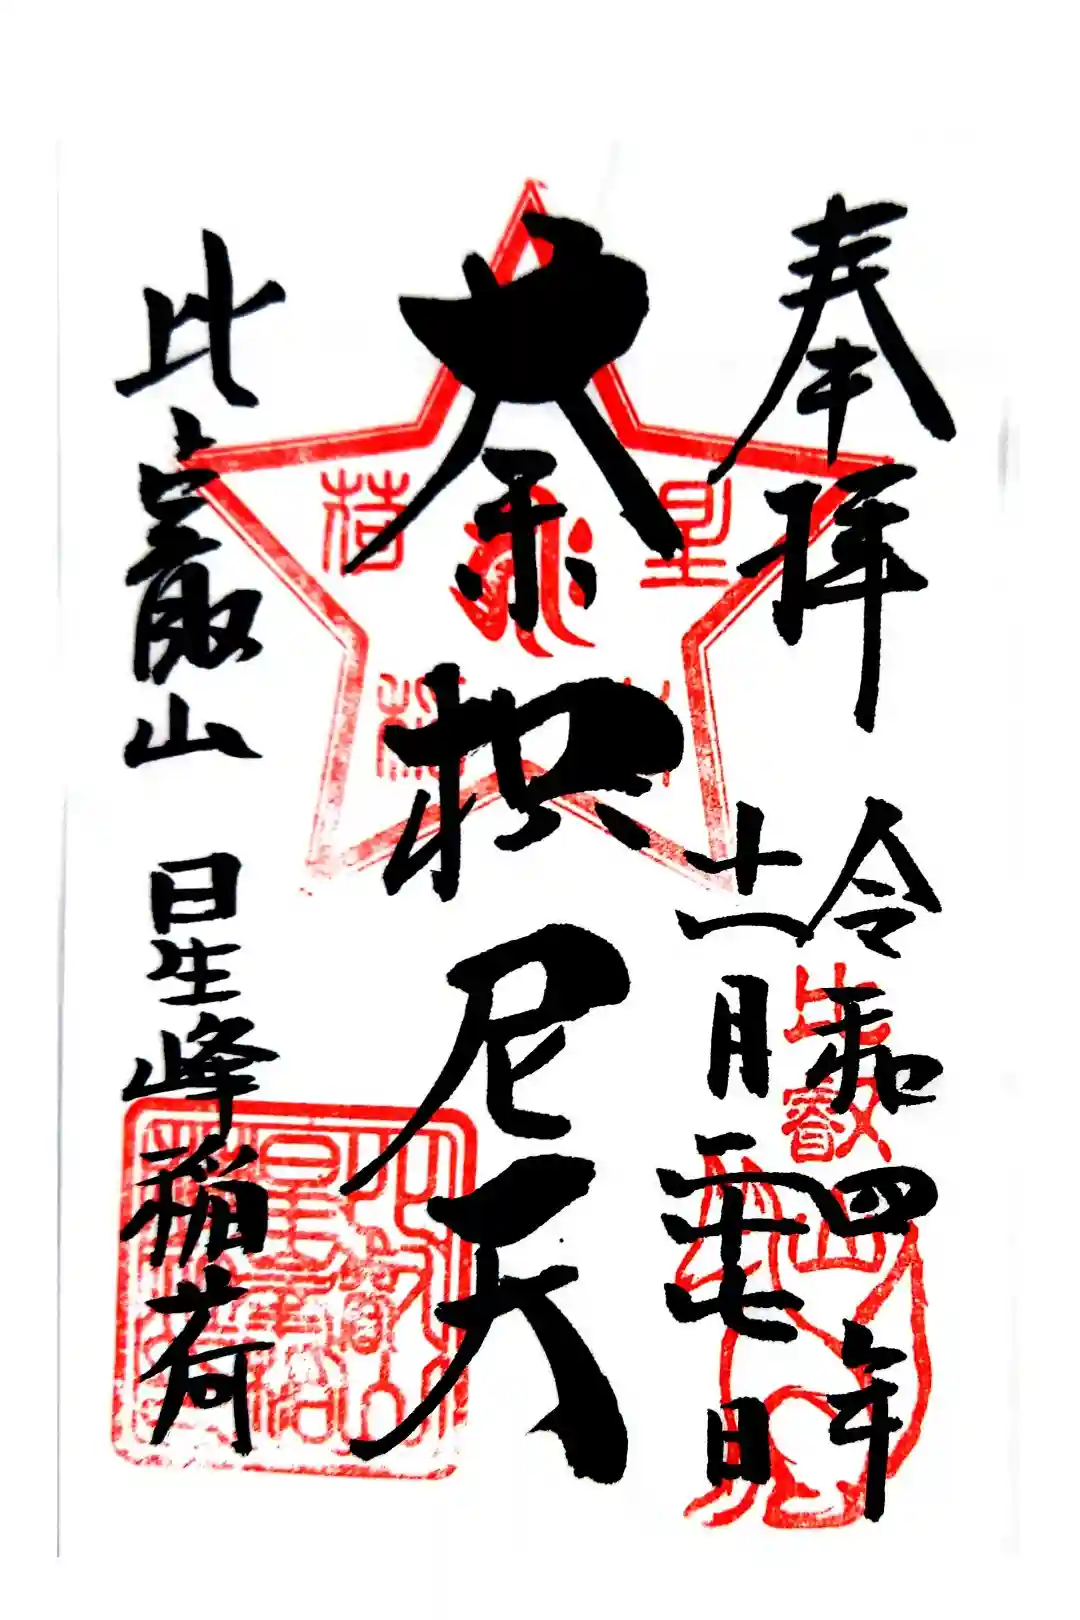 奉拝
令和四年
十一月二十七日
荼枳尼天
比叡山 星峰稲荷
比叡山
星
稲荷